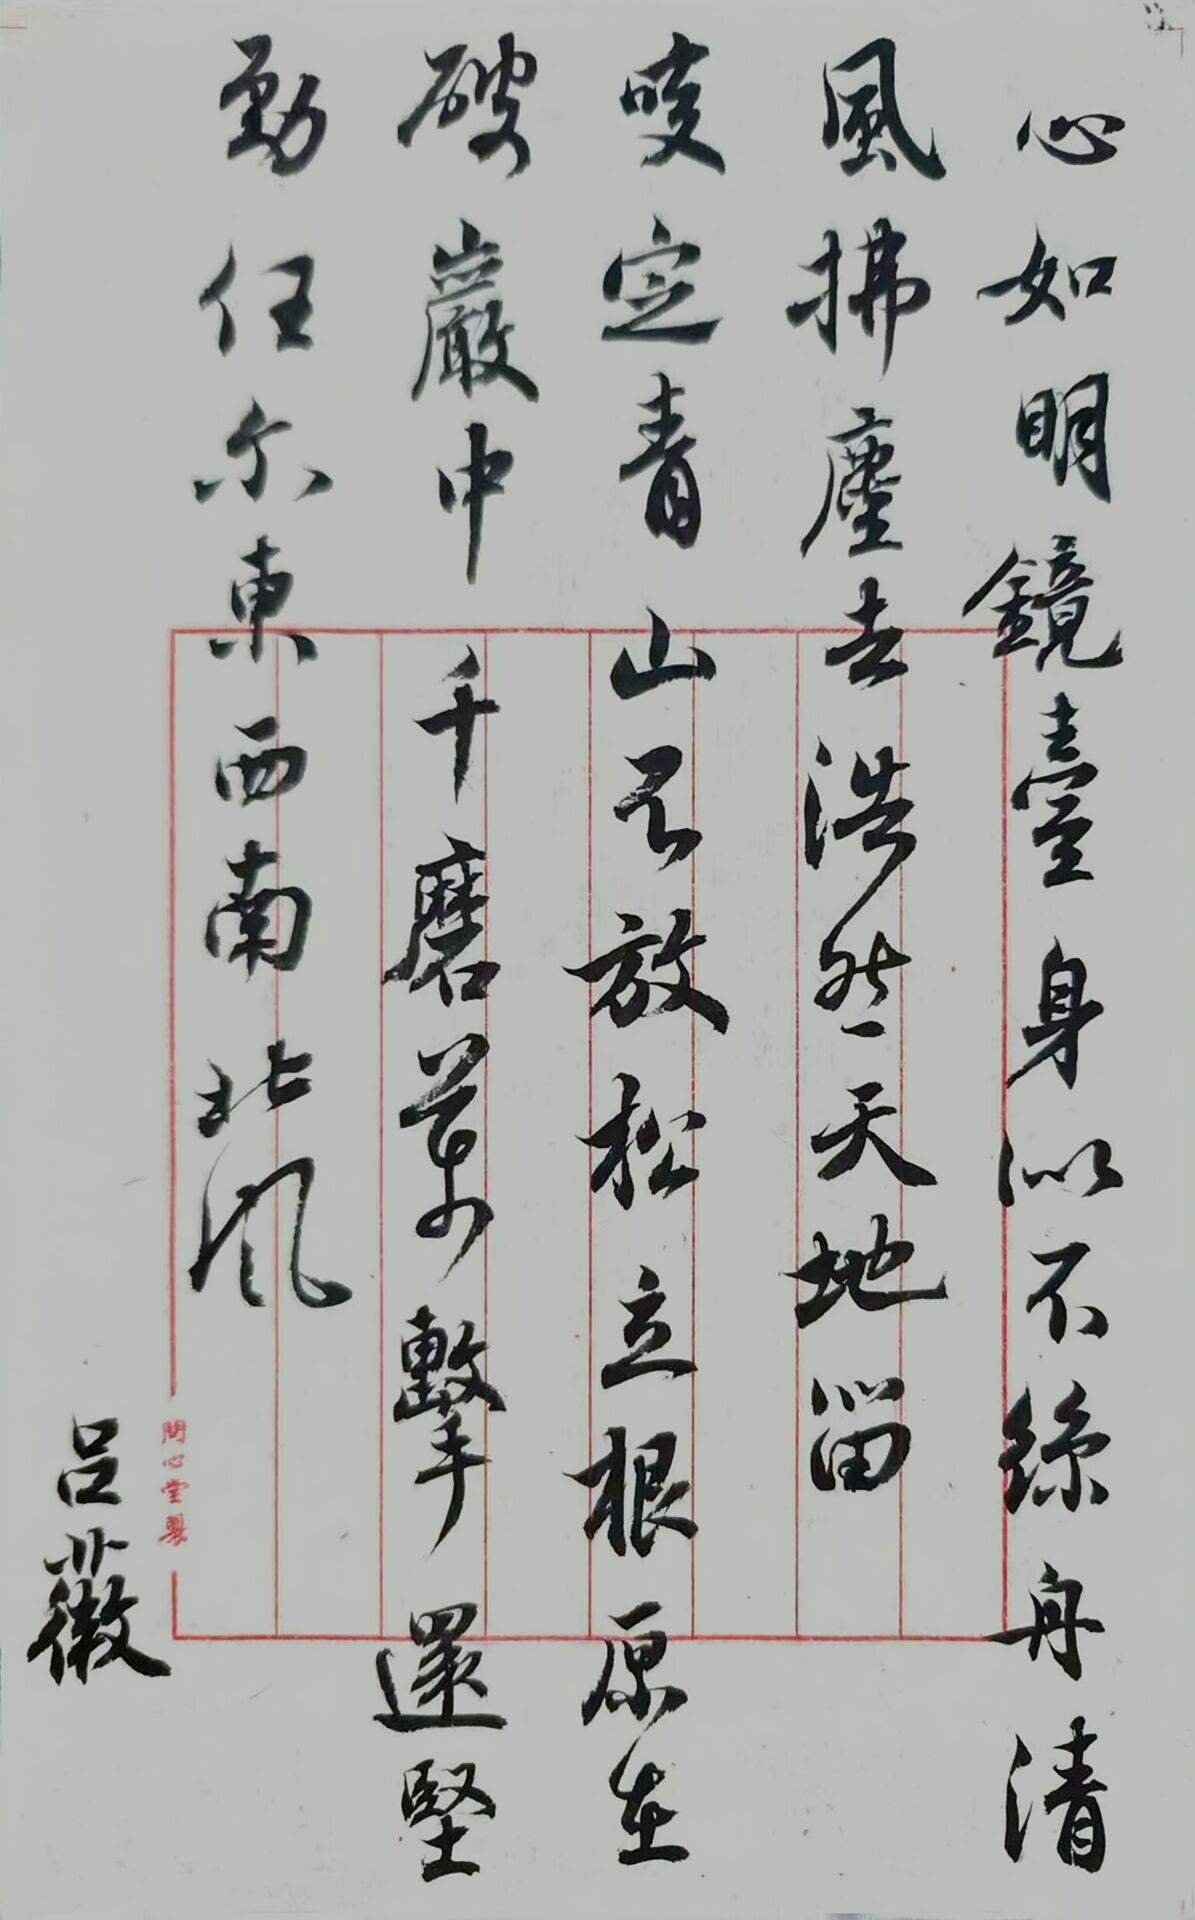 心如明鏡臺身似不絲舟清
風拂塵去浩然天地留
咬定青山不放松立根原在
破巖中千磨萬擊還堅
勁任尔東西南北风
呂薇
問心堂製